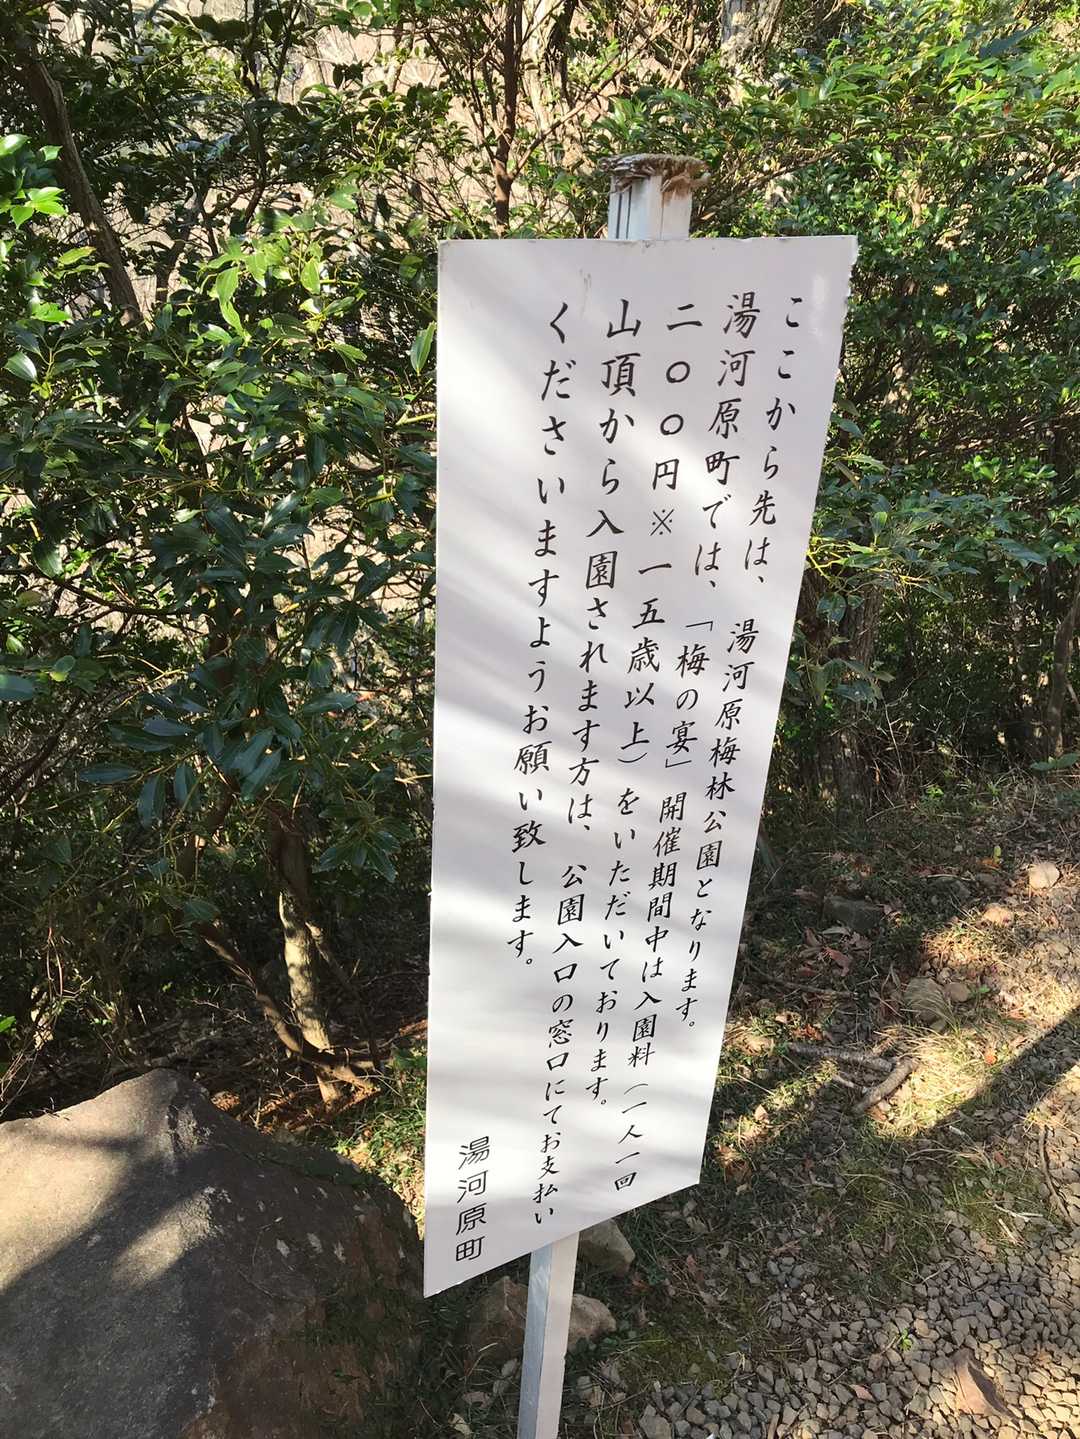 ここから先は、湯河原梅林公園となります。
湯河原町では、「梅の宴」開催期間中は入園料（一人一回
二〇〇円※一五歳以上）をいただいております。
山頂から入園されます方は、公園入口の窓口にてお支払い
くださいますようお願い致します。
湯河原町